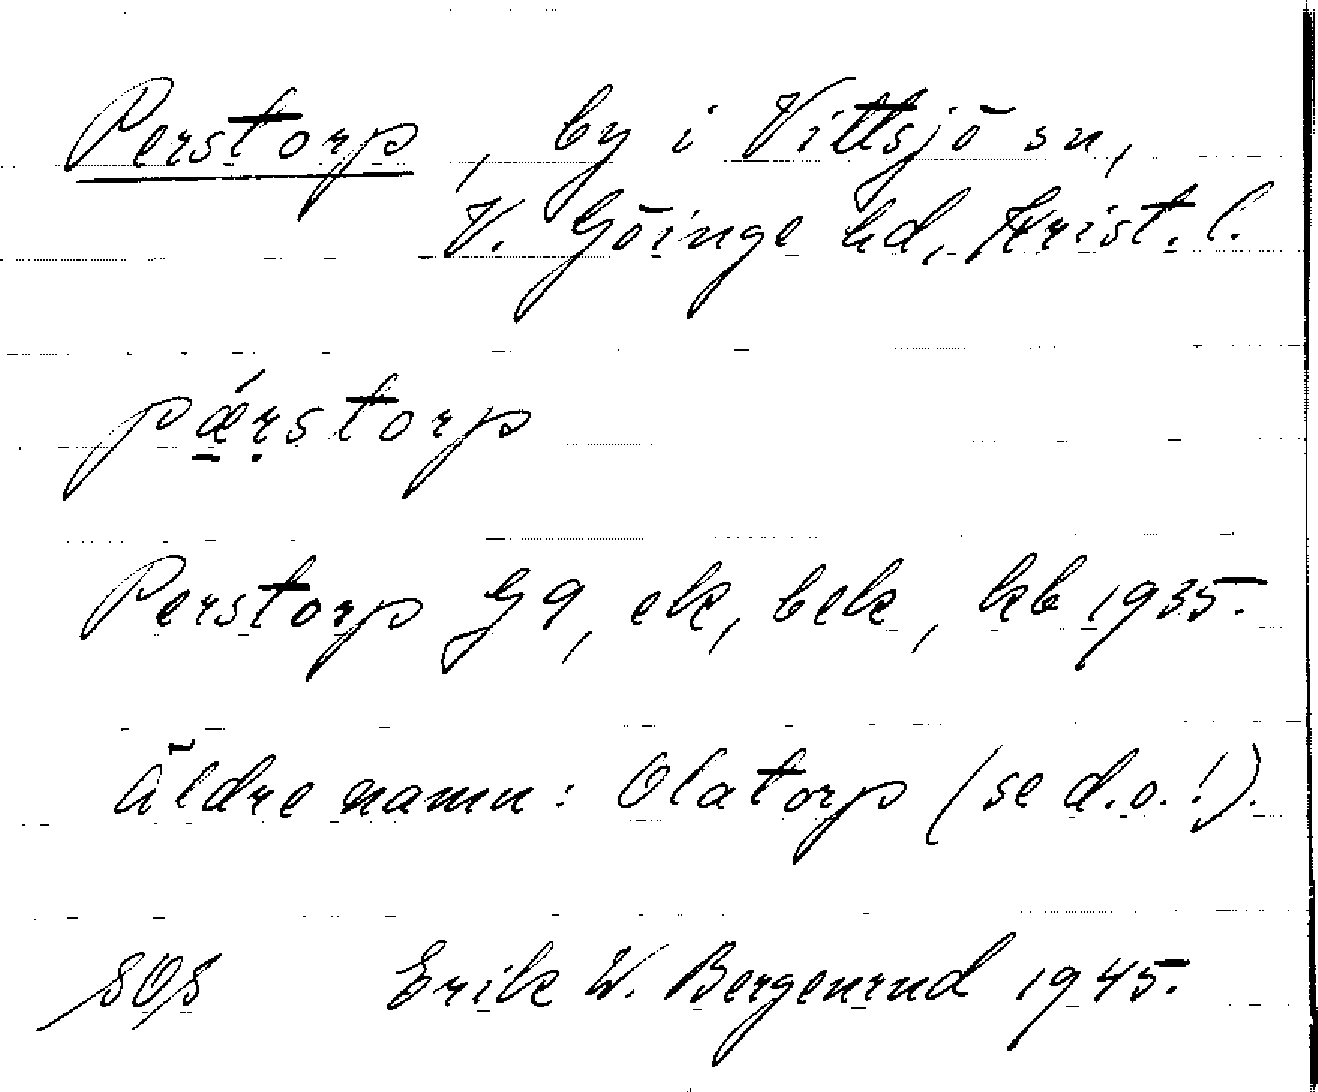 Perstorp, by i Vittsjö sn,
V. Göinge hd, Krist. l.
pǽ̱ṛstorp
Perstorp G9, ek, bek, kb 1935.
Äldre namn: Olatorp (se d.o.!).
SOS Erik W. Bergenrud 1945.